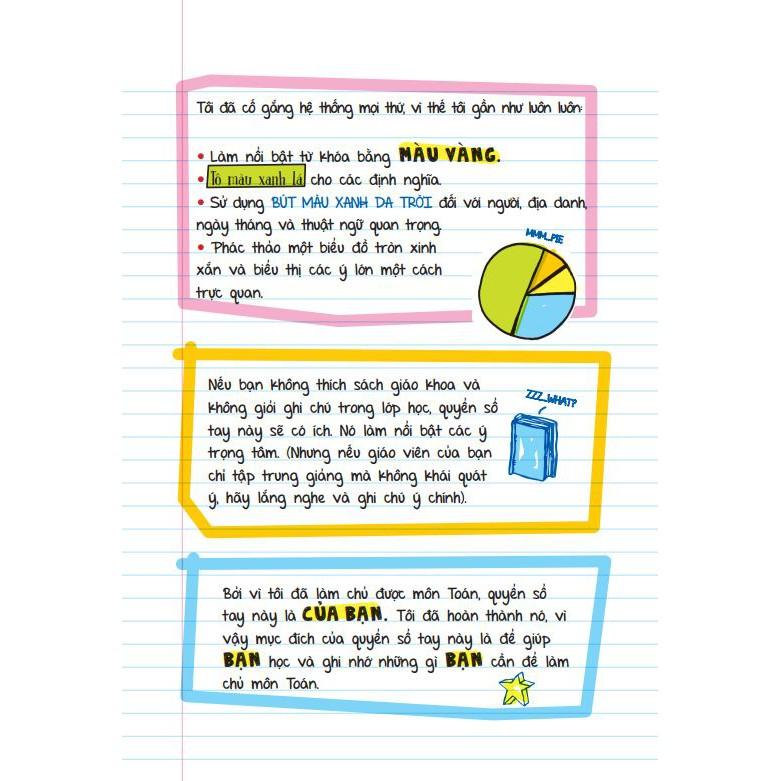 Tôi đã cố gắng hệ thống mọi thứ, vì thế tôi gần như luôn luôn:
• Làm nổi bật từ khóa bằng MÀU VÀNG.
• Tô màu xanh lá cho các định nghĩa.
• Sử dụng BÚT MÀU XANH DA TRỜI đối với người, địa danh,
ngày tháng và thuật ngữ quan trọng.
• Phác thảo một biểu đồ tròn xinh
xắn và biểu thị các ý lớn một cách
trực quan.
MMM...PIE
Nếu bạn không thích sách giáo khoa và
không giỏi ghi chú trong lớp học, quyển sổ
tay này sẽ có ích. Nó làm nổi bật các ý
trọng tâm. (Nhưng nếu giáo viên của bạn
chỉ tập trung giảng mà không khái quát
ý, hãy lắng nghe và ghi chú ý chính).
ZZZ...WHAT?
Bởi vì tôi đã làm chủ được môn Toán, quyển sổ
tay này là CỦA BẠN. Tôi đã hoàn thành nó, vì
vậy mục đích của quyển sổ tay này là để giúp
BẠN học và ghi nhớ những gì BẠN cần để làm
chủ môn Toán.